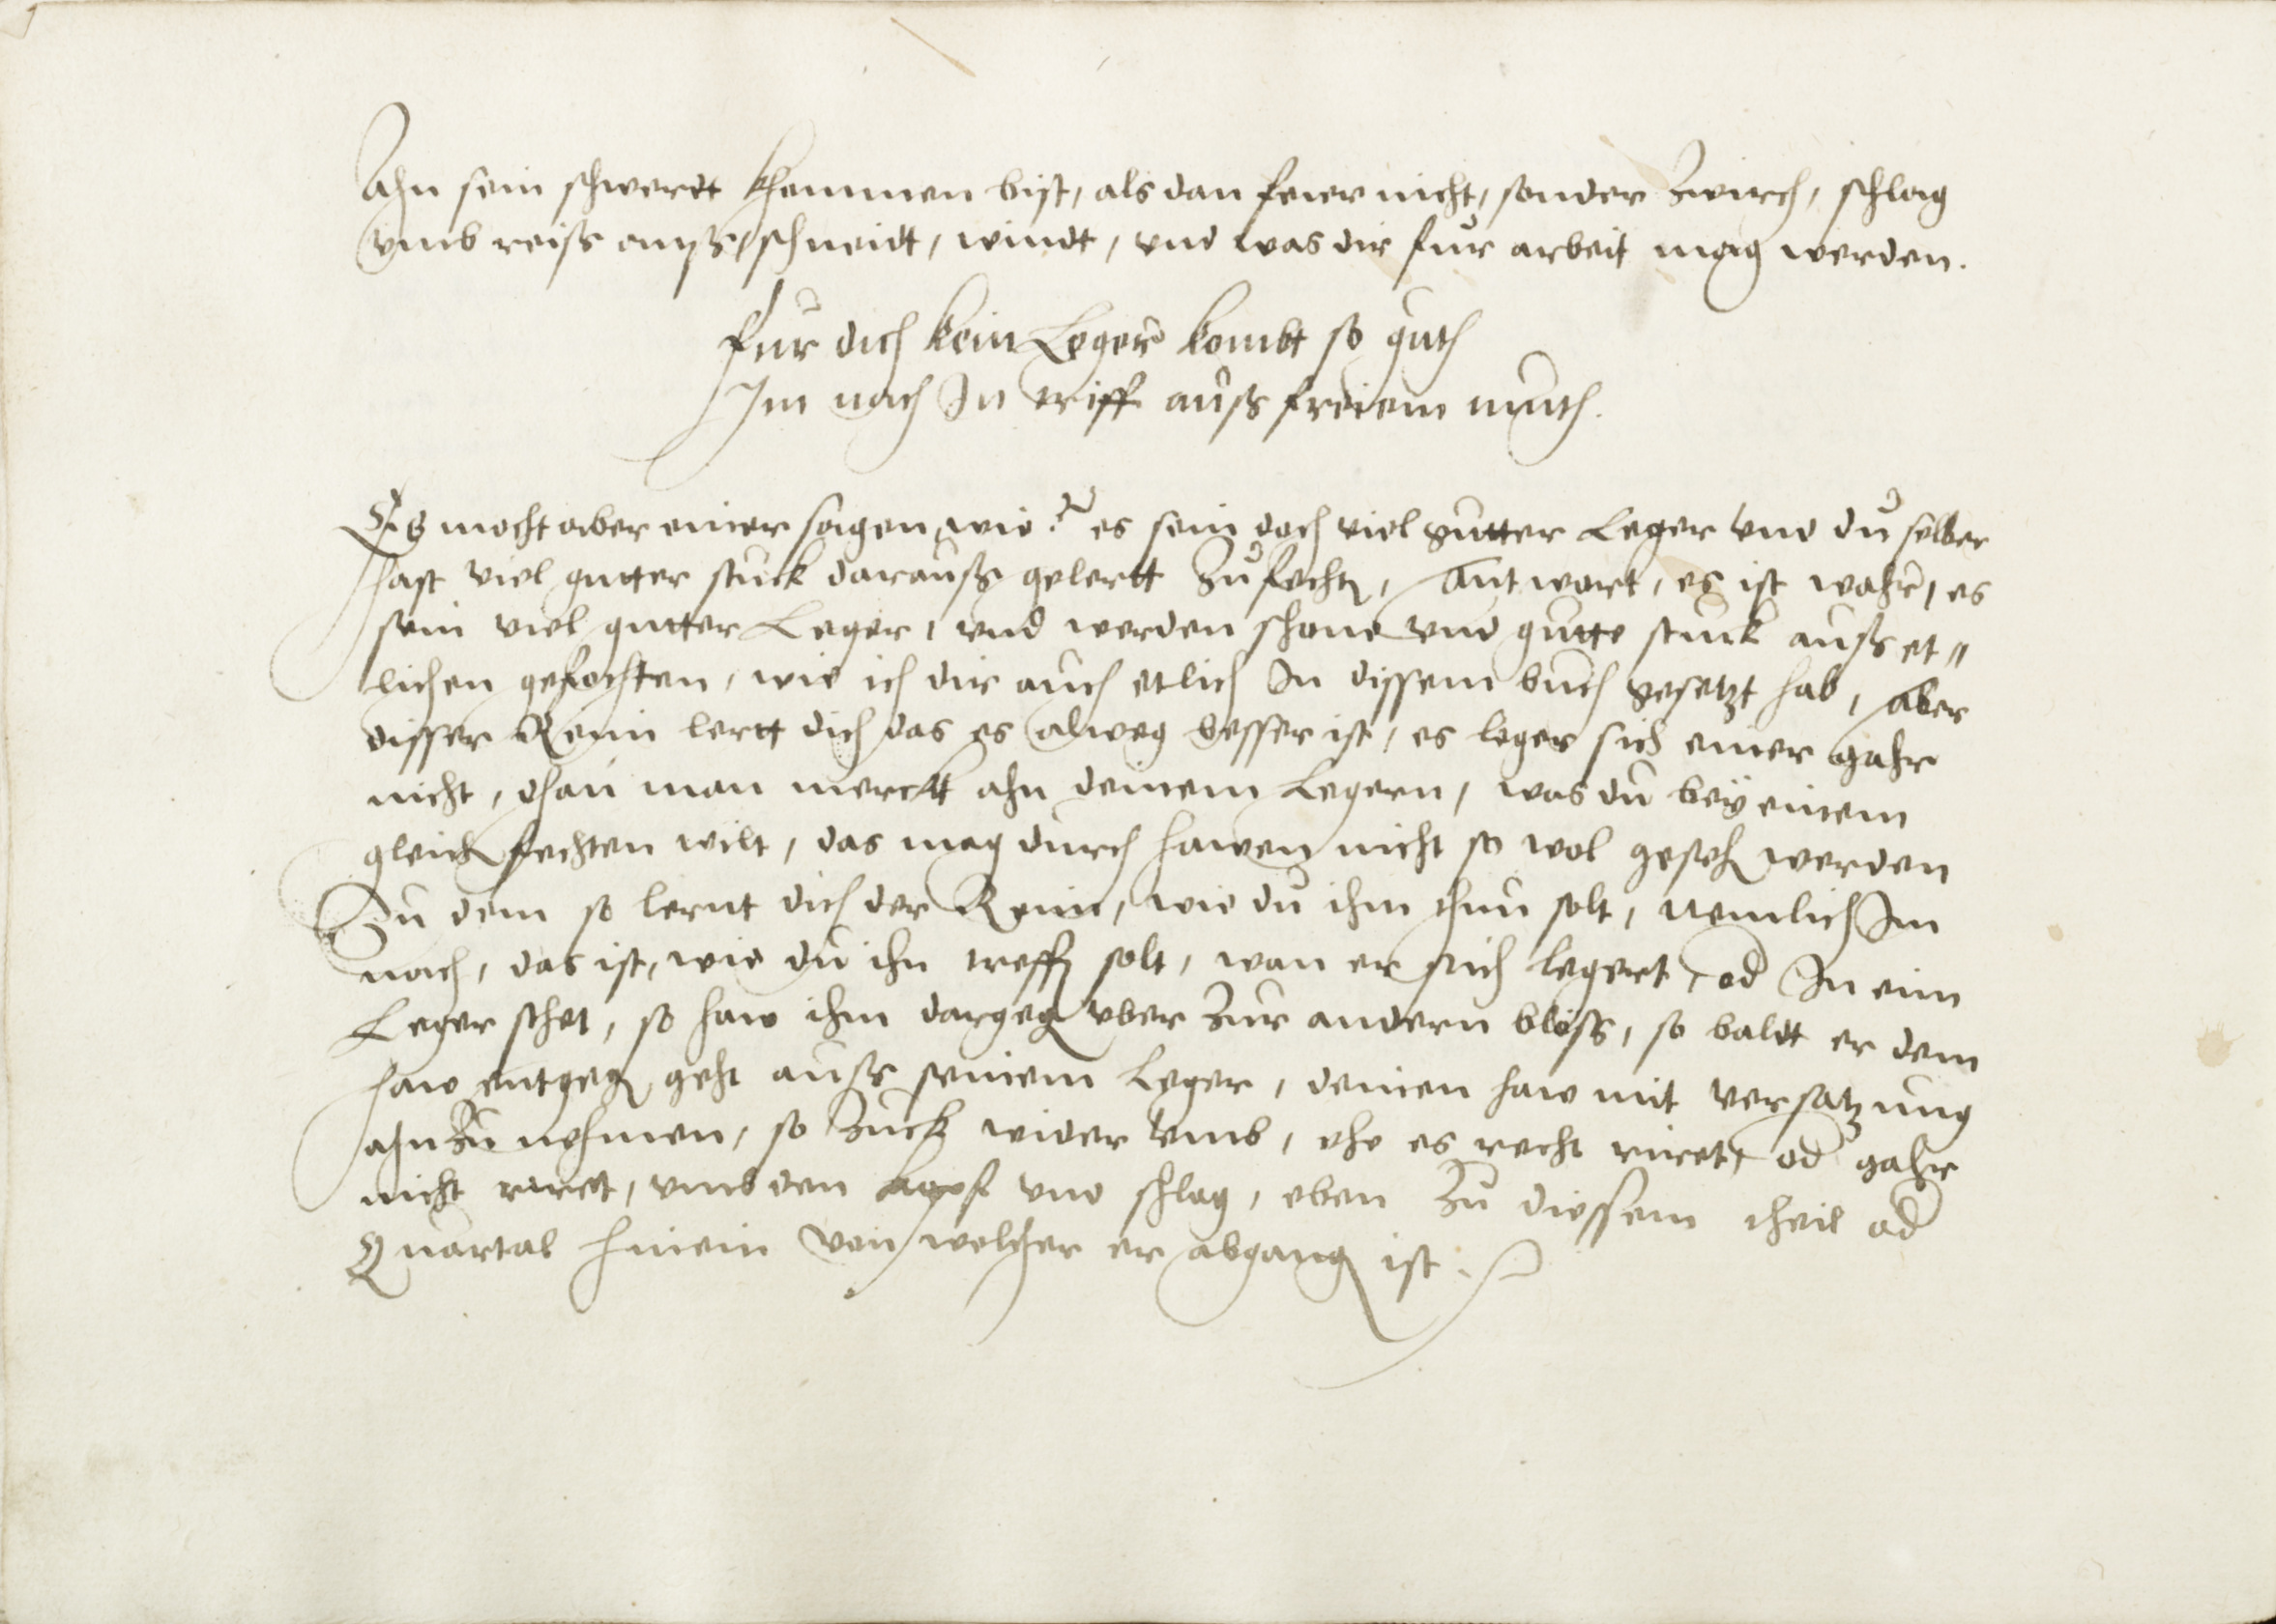 Ahn sein schwerdt khommen bist, als dan feier nicht, sonder Zwirch, schlag
vmb reiss auss, schneidt, windt, vnd was dir für arbeit mag werden.
für dich kein Leger kombt so guth
Im nach In triff auss freiem muth.
Es mocht aber einer sagen, wie? es sein doch viel gutter Leger vnd dú selber
hast viel gutter stuck daraúss gelertt Zú fechtn, Antwort, es ist wahr, es
sein viel gutter Leger, vnd werden schone vnd gutte stuck aúss et„
lichen gefochten, wie ich dir aúch etlich In dissem búch gesetzt hab, Aber
disser Reim lertt dich das es alweg besser ist, es leger sich einer gahr
nicht, dhan man merckt ahn deinem Legern, was dú beÿ einem
gleich fechten wilt, das mag dúrch hawen nicht so wol gesehn werden
Zú dem so lernt dich der Reim, wie dú ihm thún solt, nemlich Im
nach, das ist, wie dú ihn treffn solt, wan er sich legert, od In eim
Leger sthet, so haw ihm dargegn vber Zúr andern blöss, so baldt er dem
haw entgegn geht aúss seinem Leger, deinen haw mit versatzúng
ahn Zú nehmen, so Zúck wider vmb, ehe es recht rúret, od gahr
nicht rúret, vmb den kopf vnd schlag, eben Zú diessem theil od
Quartal hinein von welcher er abgangn ist.